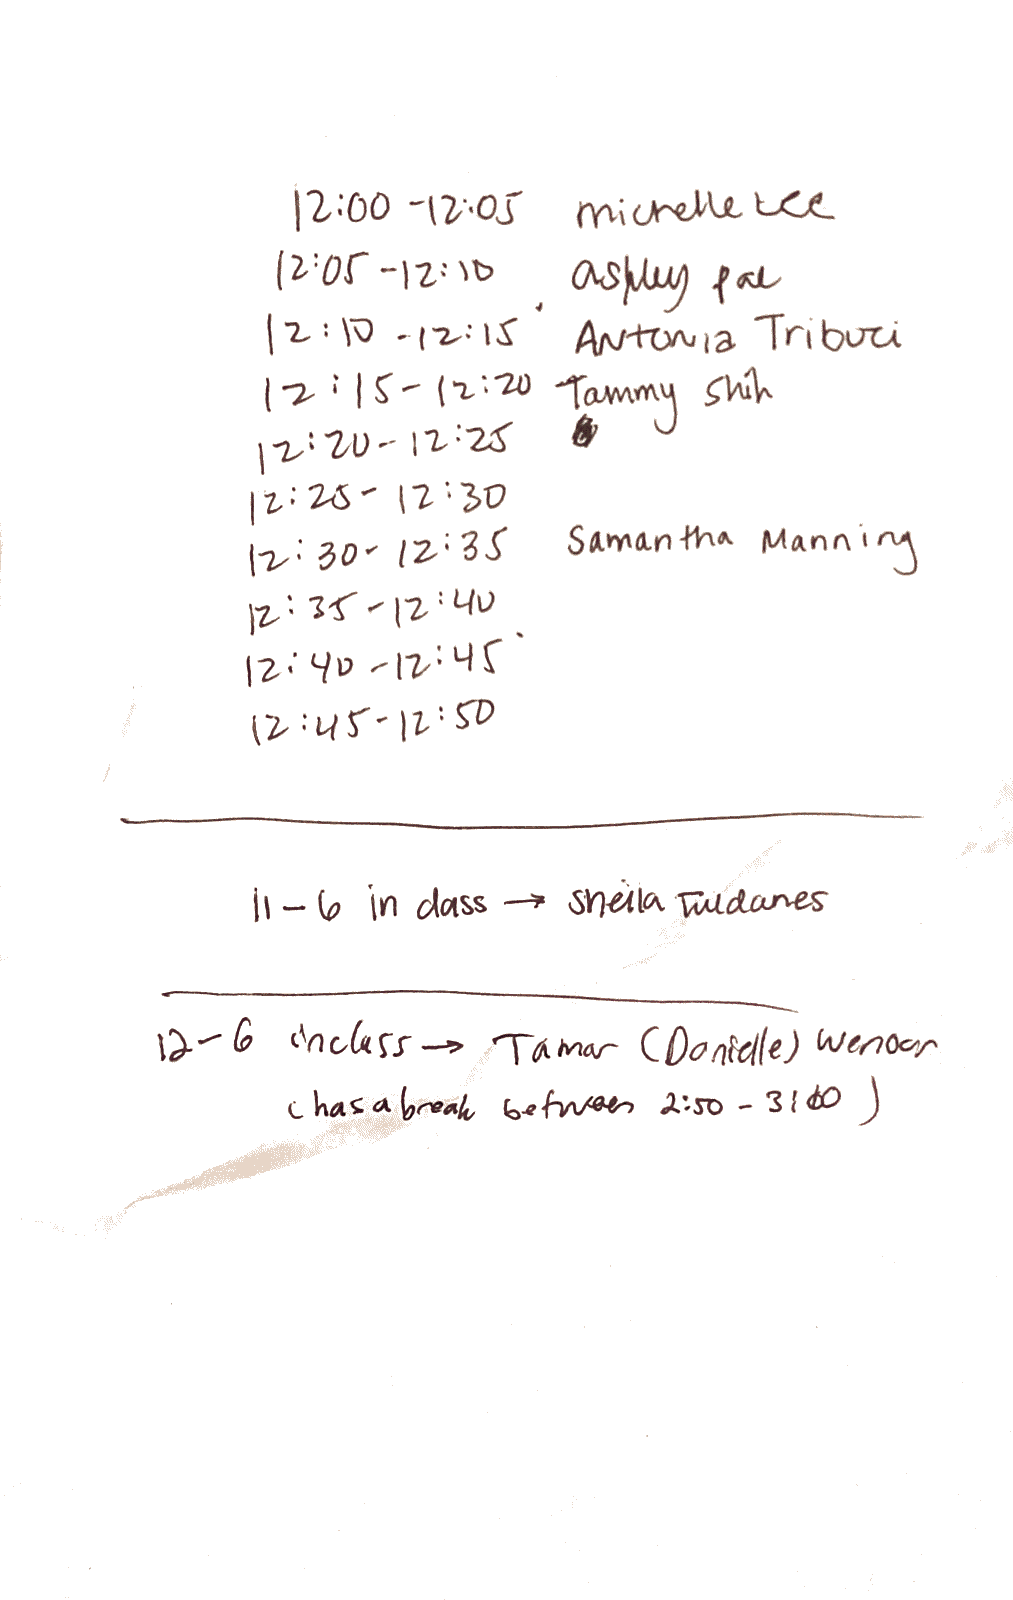 12:00 - 12:05 michelle Lee
12:05 - 12:10 ashley pae
12:10 - 12:15 Antonia Tribuci
12:15 - 12:20 Tammy Shih
12:20 - 12:25
12:25 - 12:30
12:30 - 12:35 Samantha Manning
12:35 - 12:40
12:40 - 12:45
12:45 - 12:50
11 - 6 in class → Sheila
12 - 6 inclass → Tamar (Danielle)
(has a break between 2:50 - 3:00)